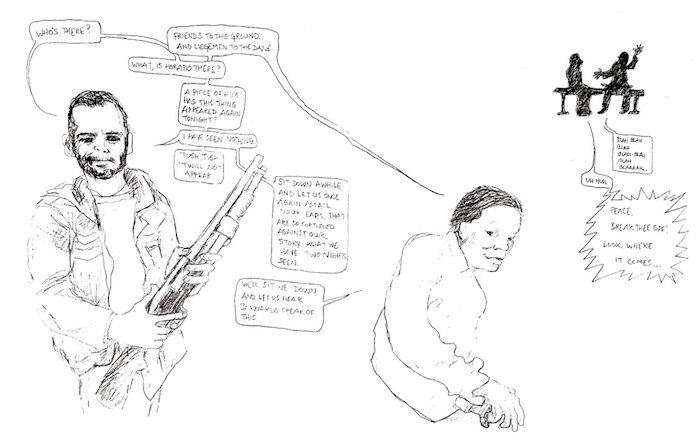 WHO'S THERE?
FRIENDS TO THIS GROUND.
AND LIEGEMEN TO THE DANE
WHAT, IS HORATIO THERE?
A PIECE OF HIM
HAS THIS THING
APPEARED AGAIN
TONIGHT?
I HAVE SEEN NOTHING.
TUSH, TUSH
'TWILL NOT
APPEAR
SIT DOWN AWHILE
AND LET US ONCE
AGAIN ASSAIL
YOUR EARS, THAT
ARE SO FORTIFIED
AGAINST OUR
STORY WHAT WE
HAVE TWO NIGHTS
SEEN.
WELL, SIT WE DOWN,
AND LET US HEAR
BERNARDO SPEAK OF
THIS
BLAH BLAH
BLAH
BLAH-BLAH
BLAH
UH HUH,
PEACE,
BREAK THEE OFF!
LOOK WHERE
IT COMES...